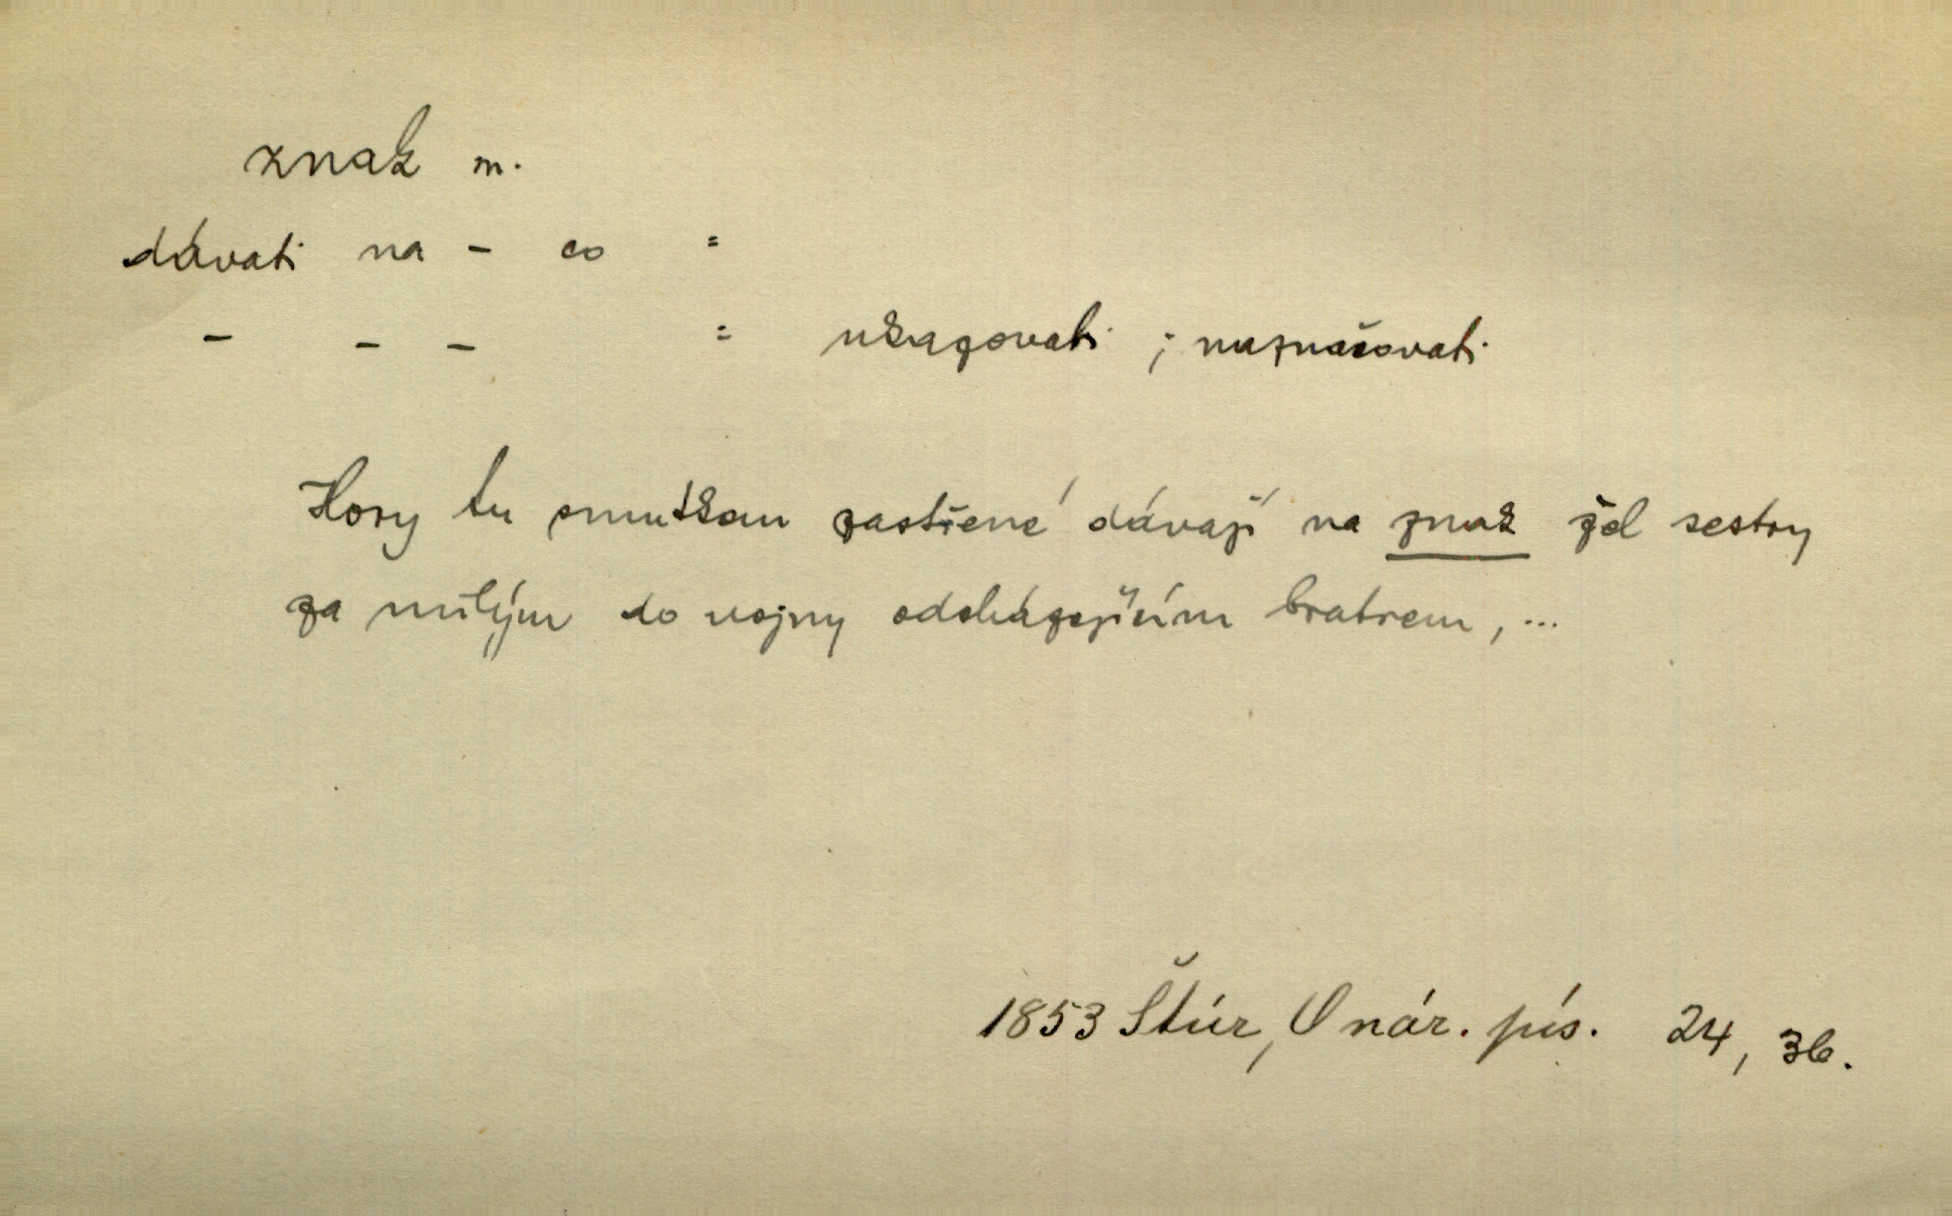 znak m.
dávati na - co =
- - - = ukazovati ; naznačovati
Hory tu smutkem zastřené dávají na znak žel sestry
za milým do vojny odcházejícím bratrem, ...
1853 Štúr, O nár. pís. 24, 36.